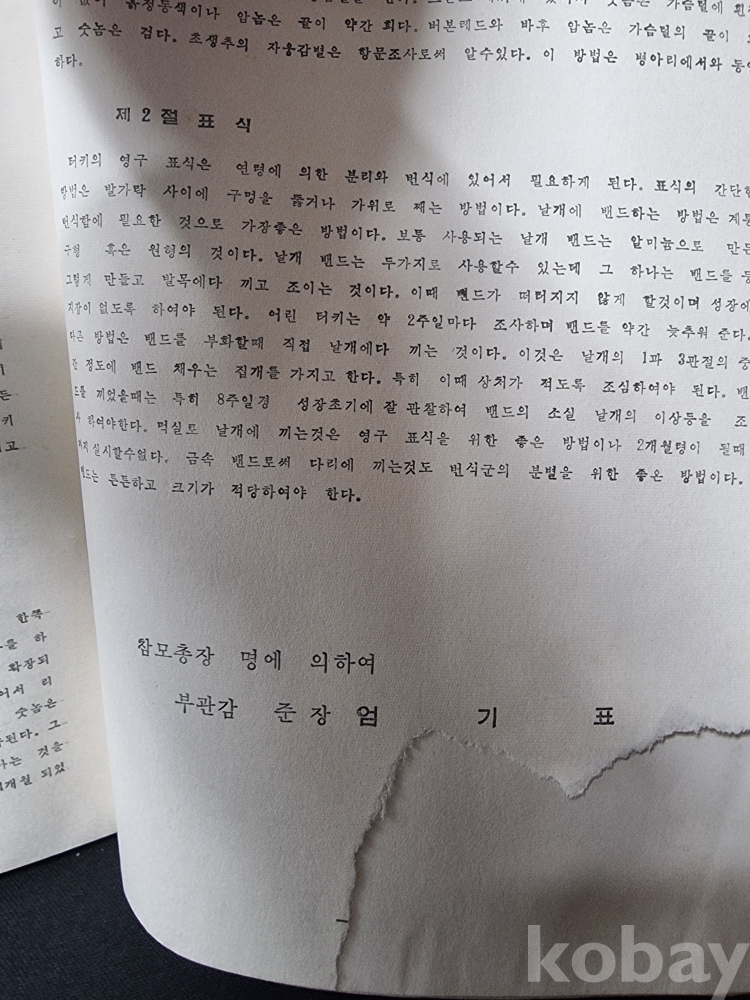 없이 흙청동색이나 암놈은 끝이 약간 희다. 버본테드와 바후 암놈은 가슴털의 끝이
고 숫놈은 검다. 초생추의 자웅감별은 항문조사로써 알수있다. 이 방법은 병아리에서와
하다.
제 2 절 표 식
터키의 영구 표식은 연령에 의한 분리와 번식에 있어서 필요하게 된다. 표식의 간단한
방법은 발가락 사이에 구멍을 뚫거나 가위로 째는 방법이다. 날개에 밴드하는 방법은
번식함에 필요한 것으로 가장좋은 방법이다. 보통 사용되는 날개 밴드는 알미늄으로 만든
구형 혹은 원형의 것이다. 날개 밴드는 두가지로 사용할수 있는데 그 하나는 밴드를
그렇게 만들고 발목에다 끼고 조이는 것이다. 이때 밴드가 떠터지지 않게 할것이며 성장에
지장이 없도록 하여야 된다. 어린 터키는 약 2주일마다 조사하며 밴드를 약간 늦추워 준다.
다른 방법은 밴드를 부화할때 직접 날개에다 끼는 것이다. 이것은 날개의 1과 3관절의
간 정도에 밴드 채우는 집개를 가지고 한다. 특히 이때 상처가 적도록 조심하여야 된다.
드를 끼었을때는 특히 8주일경 성장초기에 잘 관찰하여 밴드의 소실 날개의 이상등을
하여야한다. 먹실토 날개에 끼는것은 영구 표식을 위한 좋은 방법이나 2개월령이 될때
까지 실시할수없다. 금속 밴드로써 다리에 끼는것도 번식군의 분별을 위한 좋은 방법이다.
밴드는 튼튼하고 크기가 적당하여야 한다.
참모총장 명에 의하여
부관감 준장 엄 기 표
든
터키
리고
한쪽
를 하
확장되
어서 리
숫놈은
된다. 그
나는 것을
개월 되었
kobay